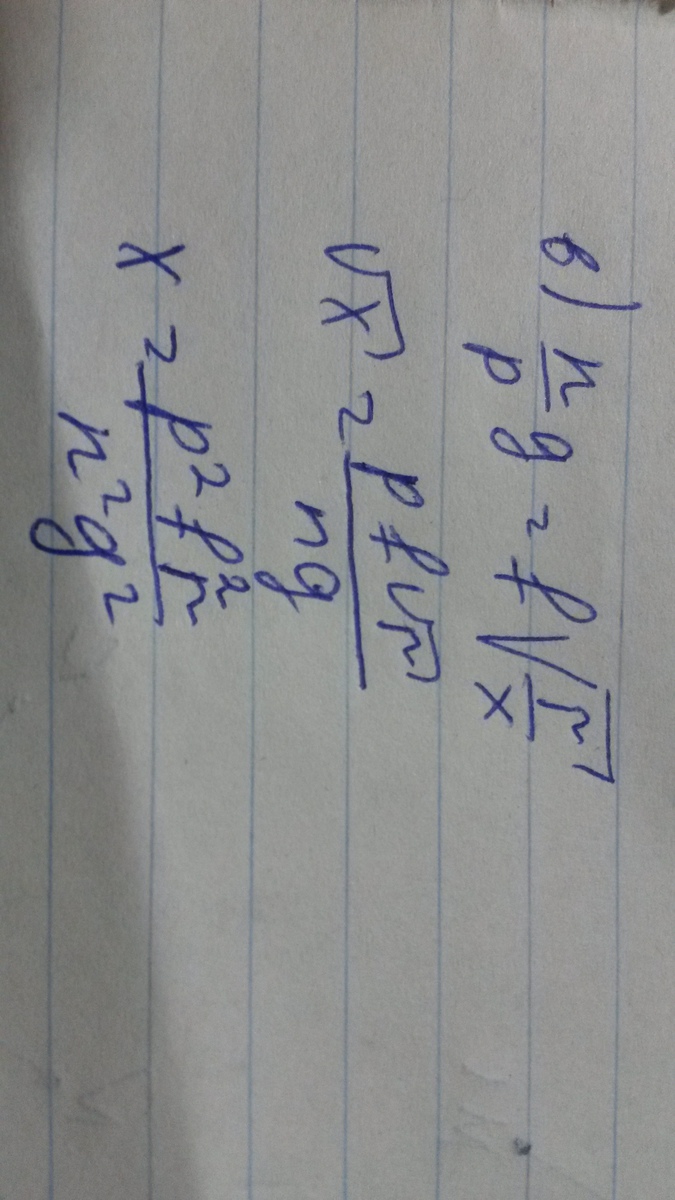 в) n/p g = f√(r/x)
√x = pf√r/ng
x = p²f²r/n²g²